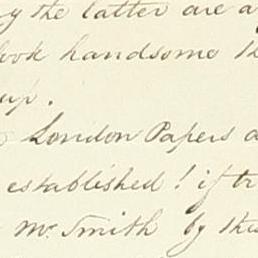 the latter are a
look handsome th
up.
London Papers a
established! if tr
Mr. Smith by the